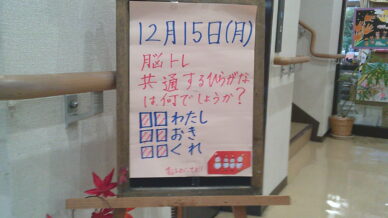 12月15日(月)
脳トレ
共通するひらがな
は何でしょうか?
わたし
おき
くれ